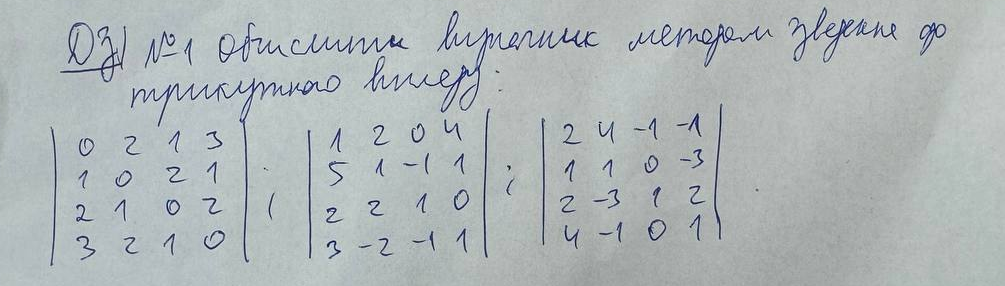 ДЗ №1 Обчислити визначник методом зведення до
трикутного вигляду:
0 2 1 3 ; 1 2 0 4 ; 2 4 -1 -1
1 0 2 1 5 1 -1 1 1 1 0 -3
2 1 0 2 2 2 1 0 2 -3 1 2
3 2 1 0 3 -2 -1 1 4 -1 0 1